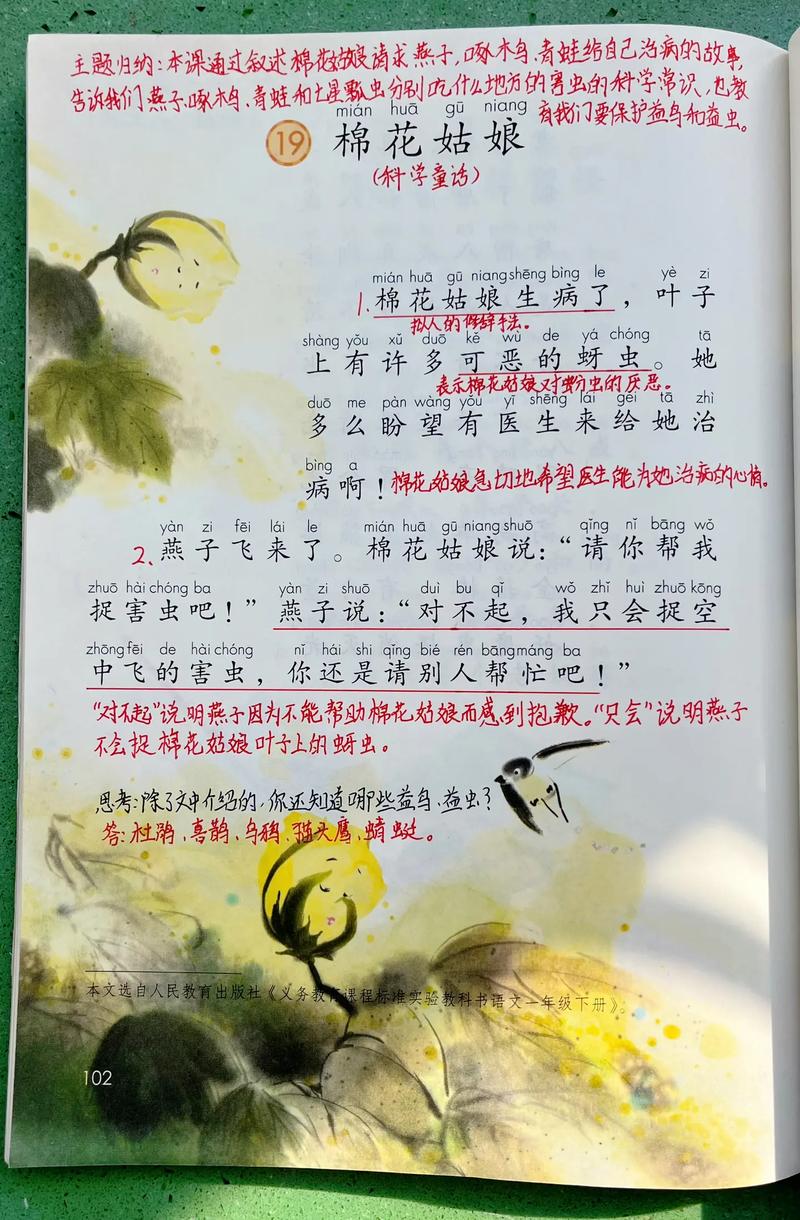 主题归纳:本课通过叙述棉花姑娘请求燕子,啄木鸟、青蛙给自己治病的故事,
告诉我们燕子、啄木鸟、青蛙和七星瓢虫分别吃什么地方的害虫的科学常识,也教
育我们要保护益鸟和益虫。
mián huā gū niang
19 棉花姑娘
(科学童话)
mián huā gū niang shēng bìng le yè zi
1. 棉花姑娘生病了,叶子
拟人的修辞手法。
shàng yǒu xǔ duō kě wù de yá chóng tā
上有许多可恶的蚜虫。她
表示棉花姑娘对蚜虫的厌恶。
duō me pàn wàng yǒu yī shēng lái gěi tā zhì
多么盼望有医生来给她治
bìng a
病啊! 棉花姑娘急切地希望医生能为她治病的心情。
yàn zi fēi lái le mián huā gū niang shuō qǐng nǐ bāng wǒ
2. 燕子飞来了。棉花姑娘说:“请你帮我
zhuō hài chóng ba yàn zi shuō duì bu qǐ wǒ zhǐ huì zhuō kōng
捉害虫吧!”燕子说:“对不起,我只会捉空
zhōng fēi de hài chóng nǐ hái shi qǐng bié rén bāng máng ba
中飞的害虫,你还是请别人帮忙吧!”
“对不起”说明燕子因为不能帮助棉花姑娘而感到抱歉。“只会”说明燕子
不会捉棉花姑娘叶子上的蚜虫。
思考:除了文中介绍的,你还知道哪些益鸟、益虫?
答:杜鹃、喜鹊、乌鸦、猫头鹰、蜻蜓。
本文选自人民教育出版社《义务教育课程标准实验教科书语文一年级下册》。
102